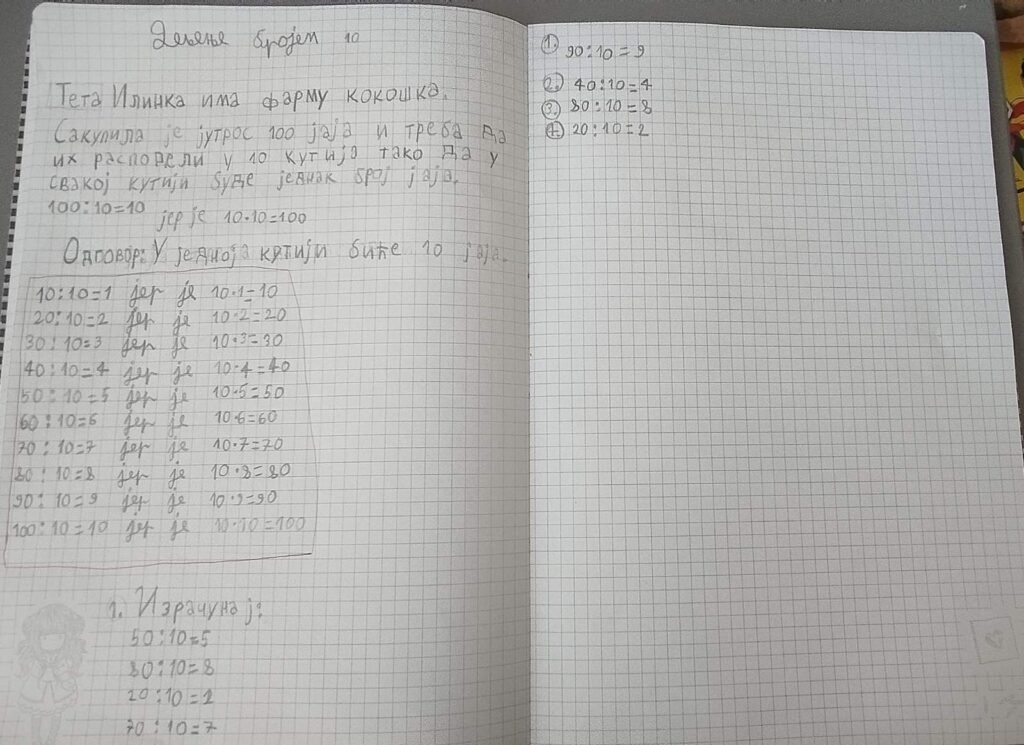 Дељење бројем 10
Тета Илинка има фарму кокошка.
Сакупила је јутрос 100 јаја и треба да
их расподели у 10 кутија тако да у
свакој кутији буде једнак број јаја.
100:10=10 јер је 10·10=100
Одговор: У једноја кутији биће 10 јаја.
10:10=1 јер је 10·1=10
20:10=2 јер је 10·2=20
30:10=3 јер је 10·3=30
40:10=4 јер је 10·4=40
50:10=5 јер је 10·5=50
60:10=6 јер је 10·6=60
70:10=7 јер је 10·7=70
80:10=8 јер је 10·8=80
90:10=9 јер је 10·9=90
100:10=10 јер је 10·10=100
1. Израчунај:
50:10=5
80:10=8
20:10=2
70:10=7
1. 90:10=9
2. 40:10=4
3. 80:10=8
4. 20:10=2